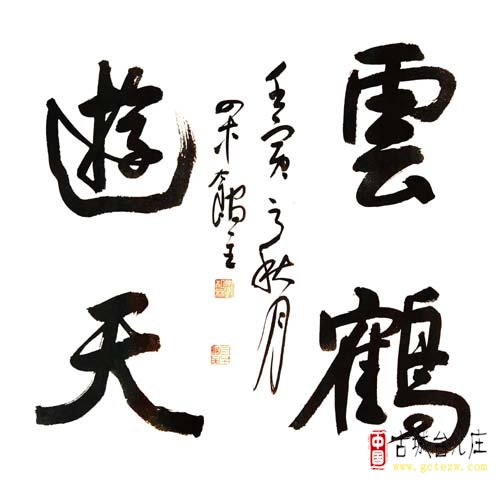 雲鶴
遊天
壬寅之秋月
館主
中国
古城台儿庄
www.gctezw.com